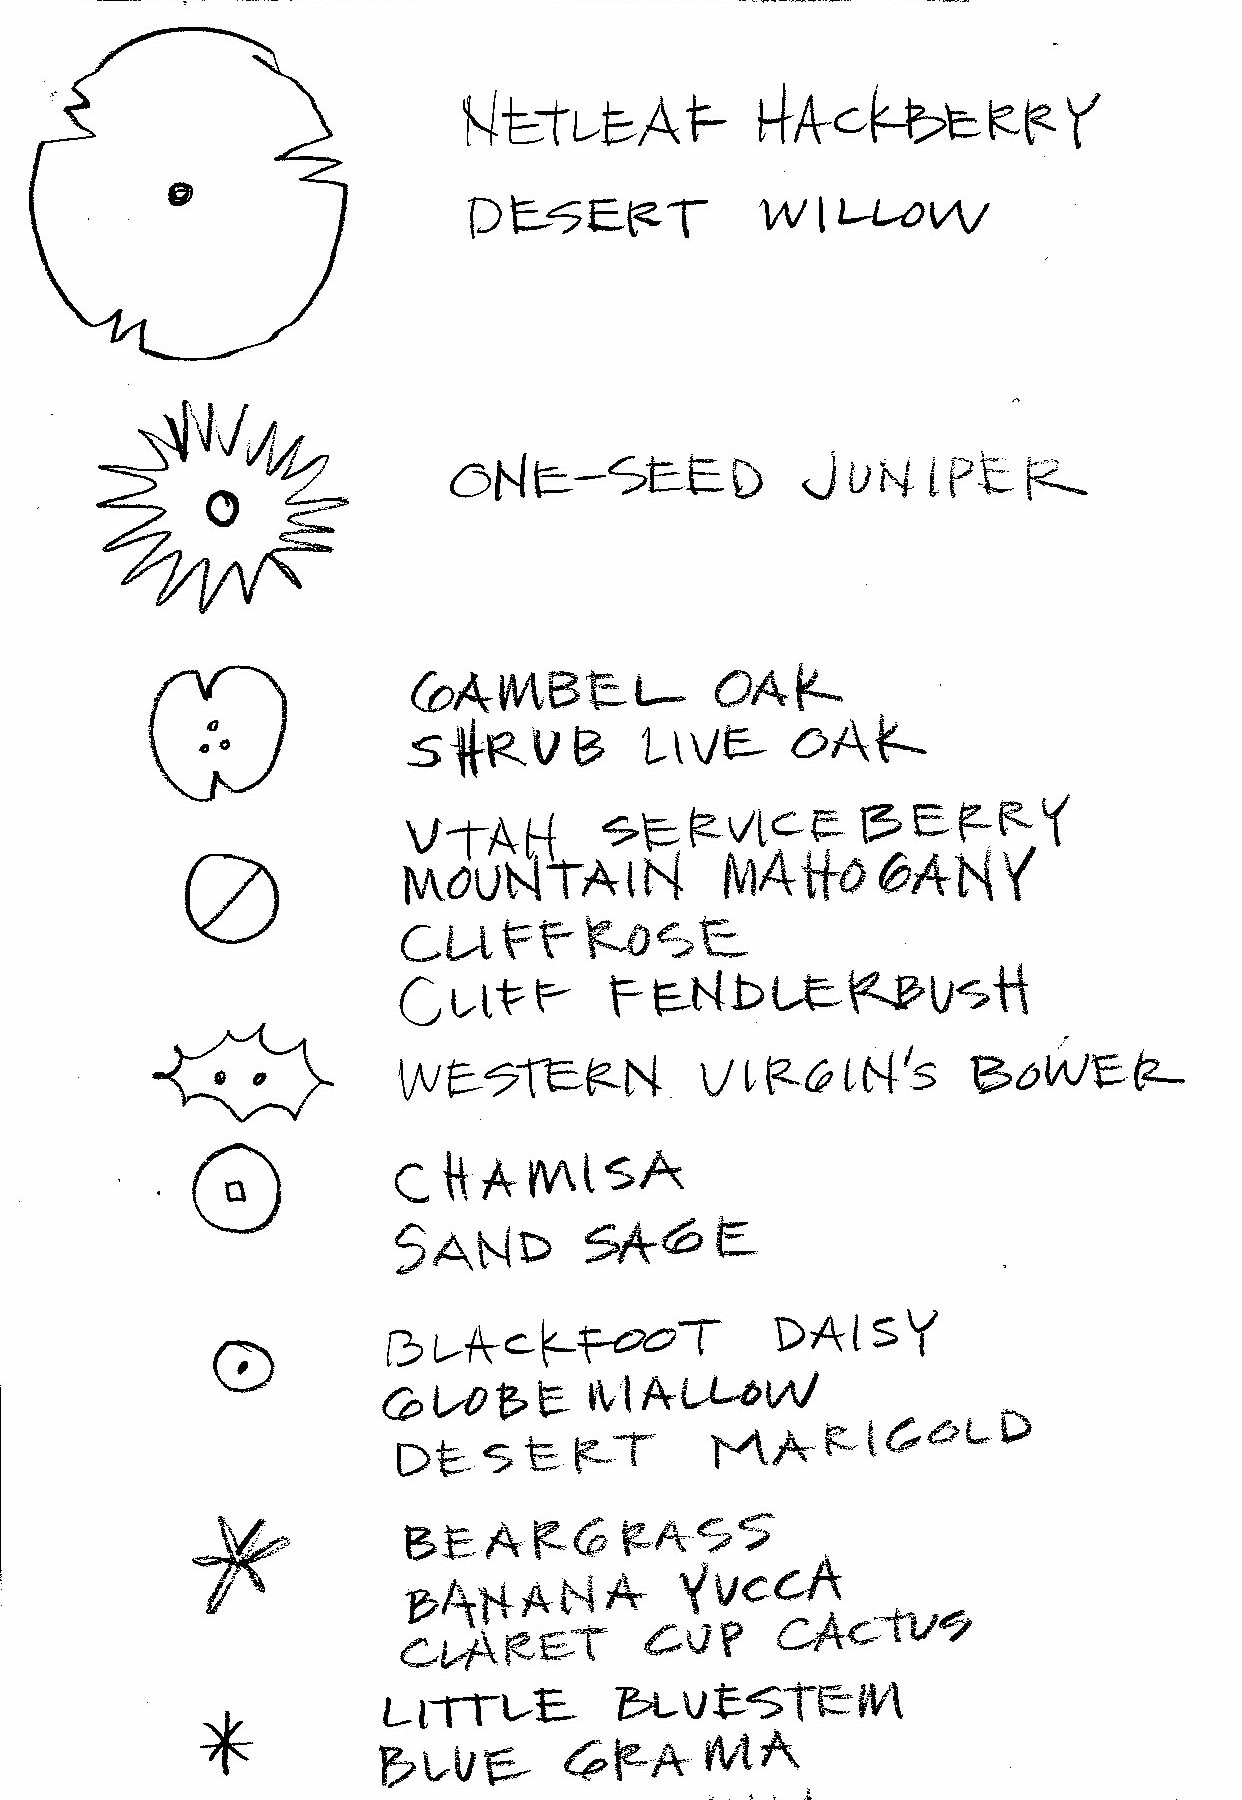 NETLEAF HACKBERRY
DESERT WILLOW
ONE-SEED JUNIPER
GAMBEL OAK
SHRUB LIVE OAK
UTAH SERVICEBERRY
MOUNTAIN MAHOGANY
CLIFFROSE
CLIFF FENDLERBUSH
WESTERN VIRGIN'S BOWER
CHAMISA
SAND SAGE
BLACKFOOT DAISY
GLOBEMALLOW
DESERT MARIGOLD
BEARGRASS
BANANA YUCCA
CLARET CUP CACTUS
LITTLE BLUESTEM
BLUE GRAMA